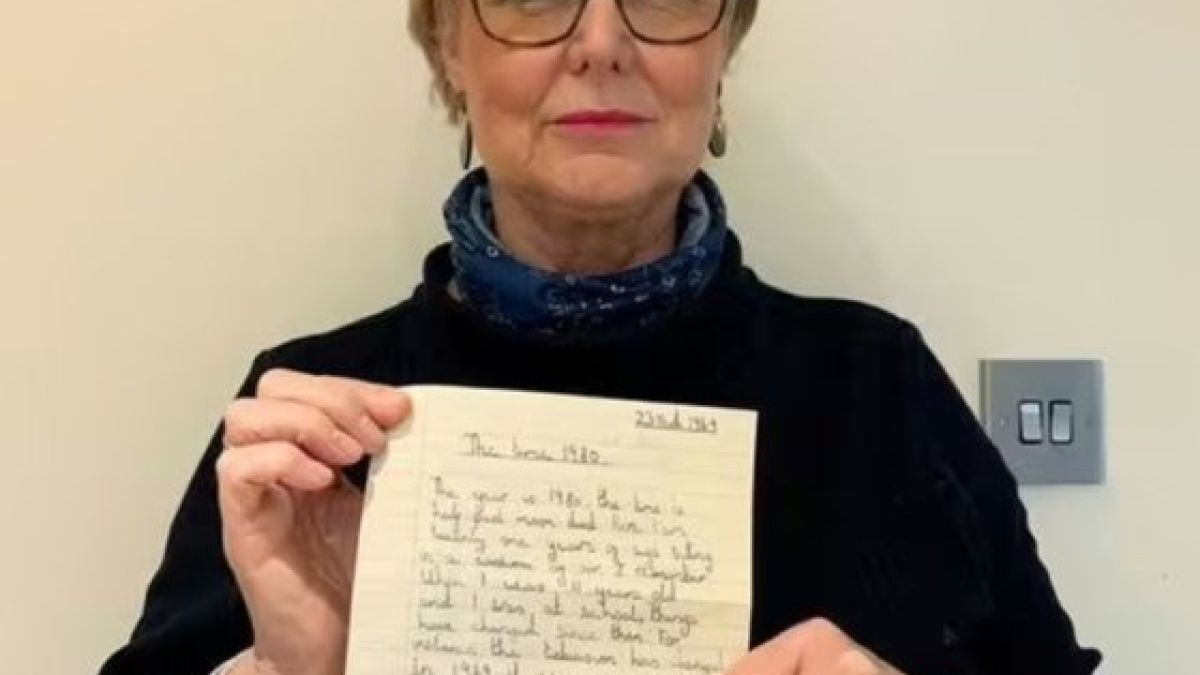 1969
The time 1980
The year is 1980 the time is
half past
twenty one years of age
in a I remember
When I was 11 years old
and I was at school things
have changed since then For
instance the television has changed
In 1969 it